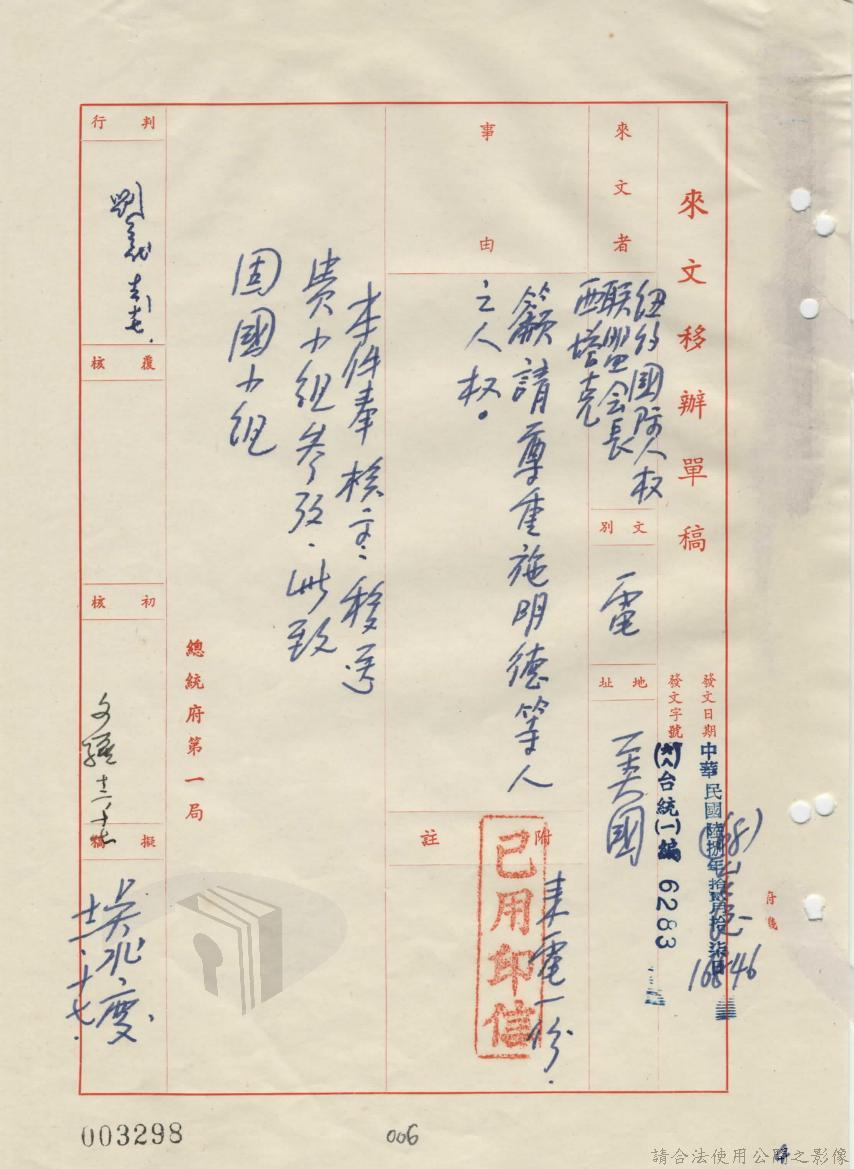 來文移辦單稿
發文日期 中華民國陸捌年拾貳月拾柒日
發文字號 (68)台統(一)編 6283
來文者
紐約國際人权
联盟会長
西塔克
文別
電
地址
美國
事由
籲請尊重施明德等人
之人权。
附註
來電一份.
已用印信
本件奉 核定移送
貴小組参考.此致
固國小組
總統府第一局
判行
覆核
初核
文
十二、十七
擬稿
吳兆
十二.十七.
003298
006
請合法使用公開之影像